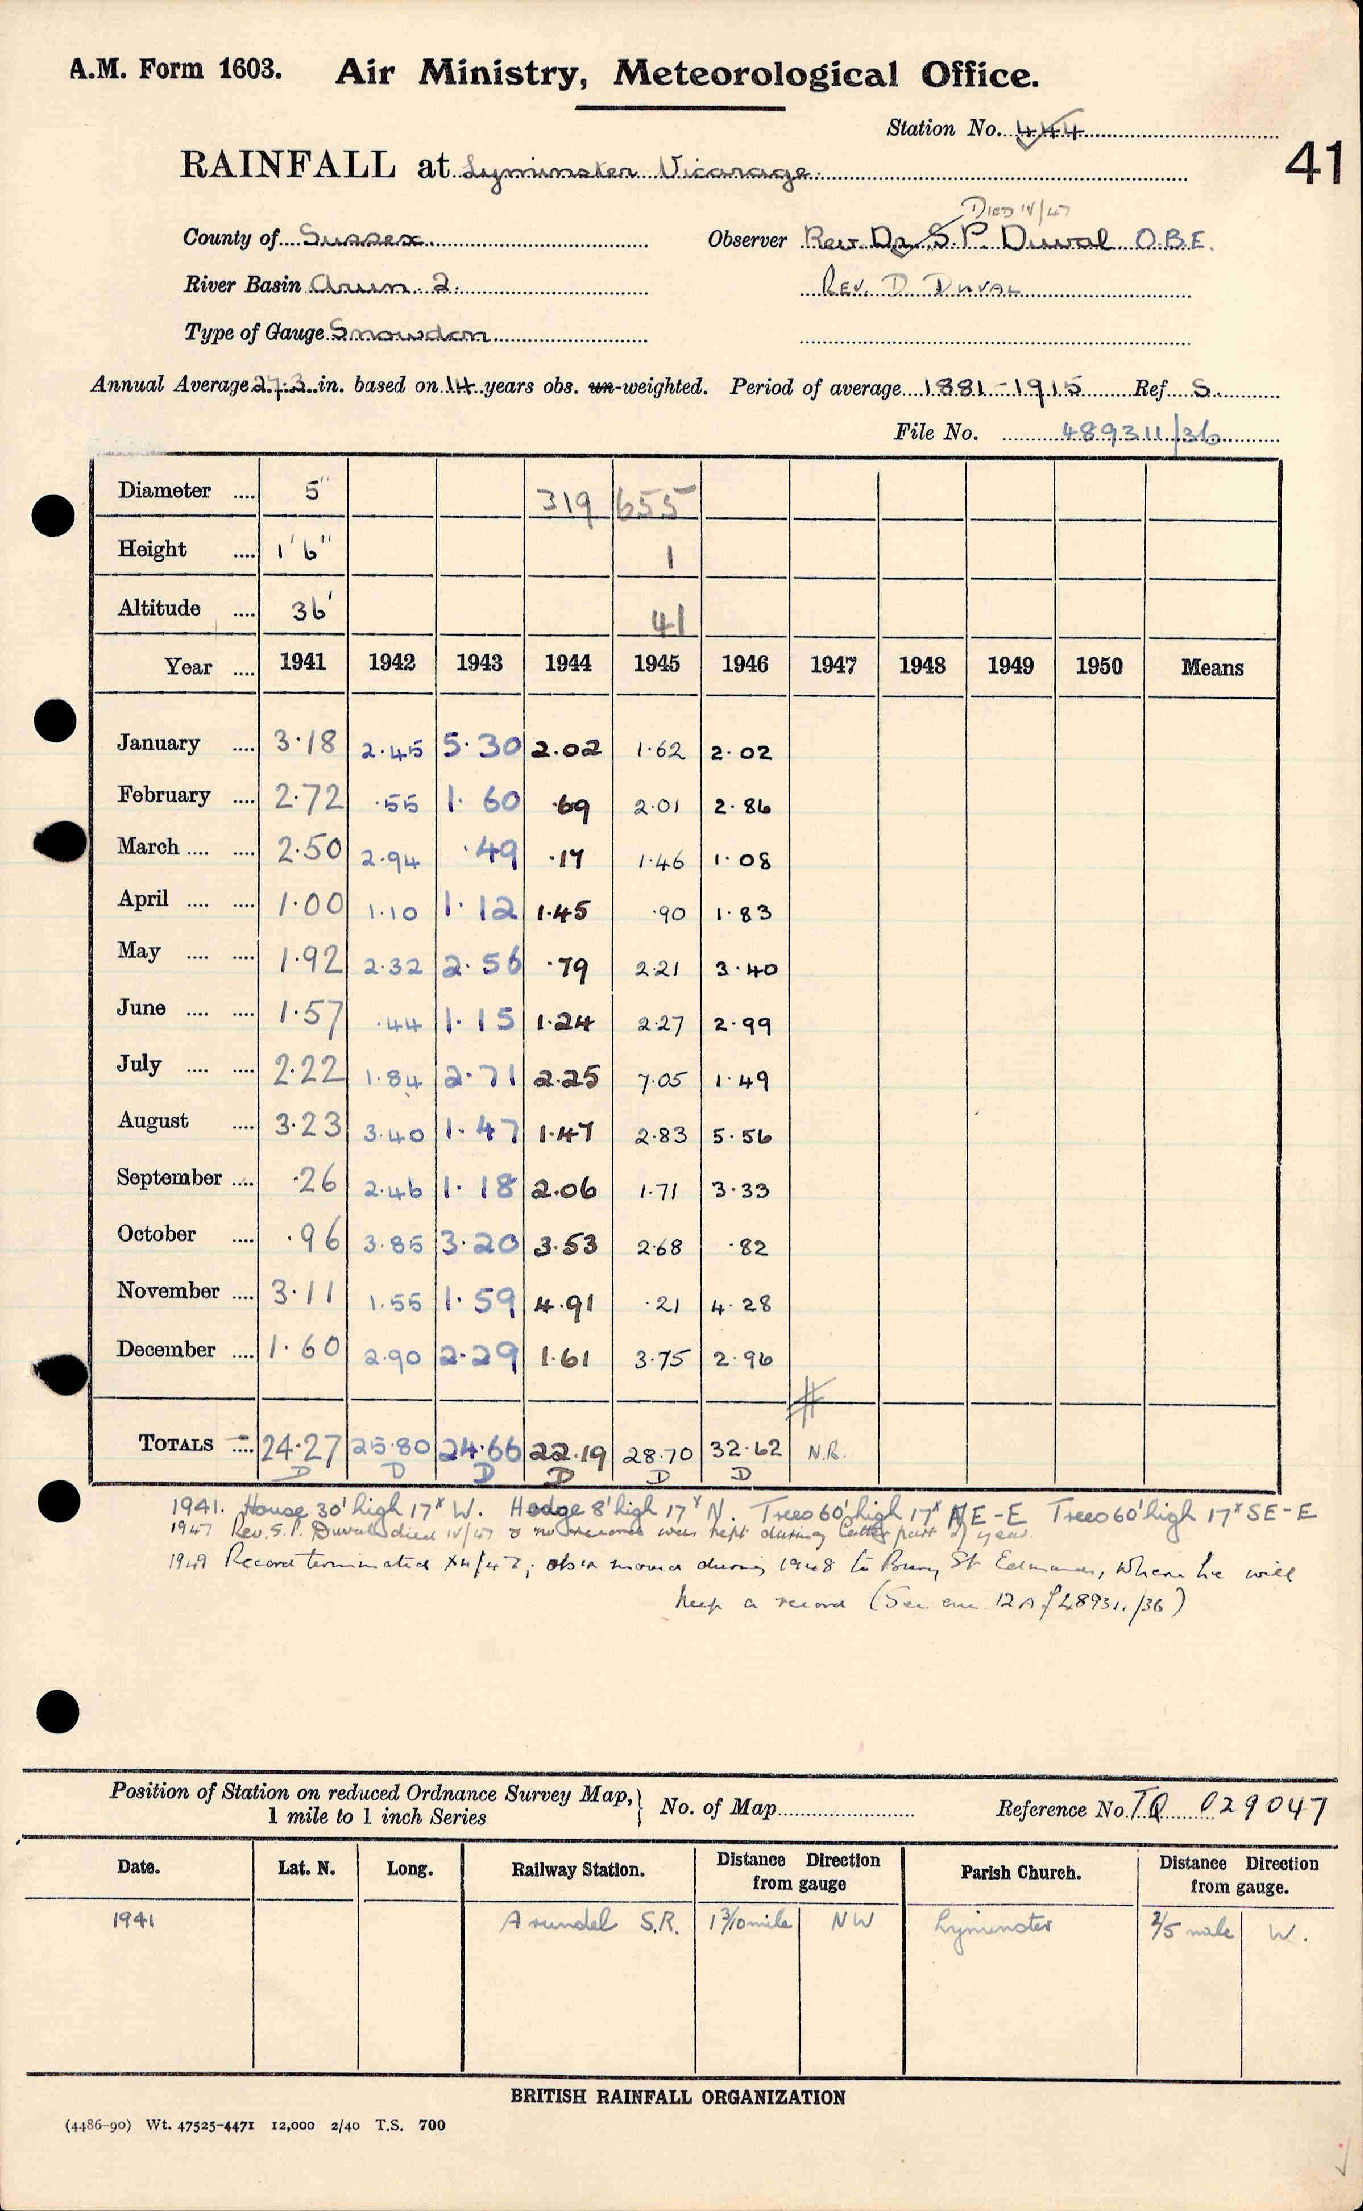 A.M. Form 1603. Air Ministry, Meteorological Office.
Station No. 444
41
RAINFALL at Lyminster Vicarage.
DIED IV/47
County of Sussex. Observer Rev. Dr. S. P. Duval O.B.E.
River Basin Arun. 2. REV. D DUVAL
Type of Gauge Snowdon
Annual Average 27.3 in. based on 14 years obs. un-weighted. Period of average 1881-1915 Ref S.
File No. 489311/36
Diameter .... 5" 319 655
Height .... 1'6" 1
Altitude .... 36' 41
Year .... 1941 1942 1943 1944 1945 1946 1947 1948 1949 1950 Means
January .... 3.18 2.45 5.30 2.02 1.62 2.02
February .... 2.72 .55 1.60 .69 2.01 2.86
March .... .... 2.50 2.94 .49 .17 1.46 1.08
April .... .... 1.00 1.10 1.12 1.45 .90 1.83
May .... .... 1.92 2.32 2.56 .79 2.21 3.40
June .... .... 1.57 .44 1.15 1.24 2.27 2.99
July .... .... 2.22 1.84 2.71 2.25 7.05 1.49
August .... 3.23 3.40 1.47 1.47 2.83 5.56
September .... .26 2.46 1.18 2.06 1.71 3.33
October .... .96 3.85 3.20 3.53 2.68 .82
November .... 3.11 1.55 1.59 4.91 .21 4.28
December .... 1.60 2.90 2.29 1.61 3.75 2.96
#
TOTALS .... 24.27 25.80 24.66 22.19 28.70 32.62 N.R.
D D D D D D
1941. House 30' high 17x W. Hedge 8' high 17x N. Trees 60' high 17x NE-E Trees 60' high 17x SE-E
1947 Rev. S.P. Duval died IV/47 & no record was kept during latter part of year.
1949 Record terminated; obsr moved during 1948 to Bury St Edmunds, where he will
keep a record (See enc 12A of 489311/36)
Position of Station on reduced Ordnance Survey Map, 1 mile to 1 inch Series } No. of Map Reference No. TQ 029047
Date. Lat. N. Long. Railway Station. Distance Direction from gauge Parish Church. Distance Direction from gauge.
1941 Arundel S.R. 1 3/10 mile NW Lyminster 2/5 mile W.
BRITISH RAINFALL ORGANIZATION
(4486-90) Wt. 47525-4471 12,000 2/40 T.S. 700